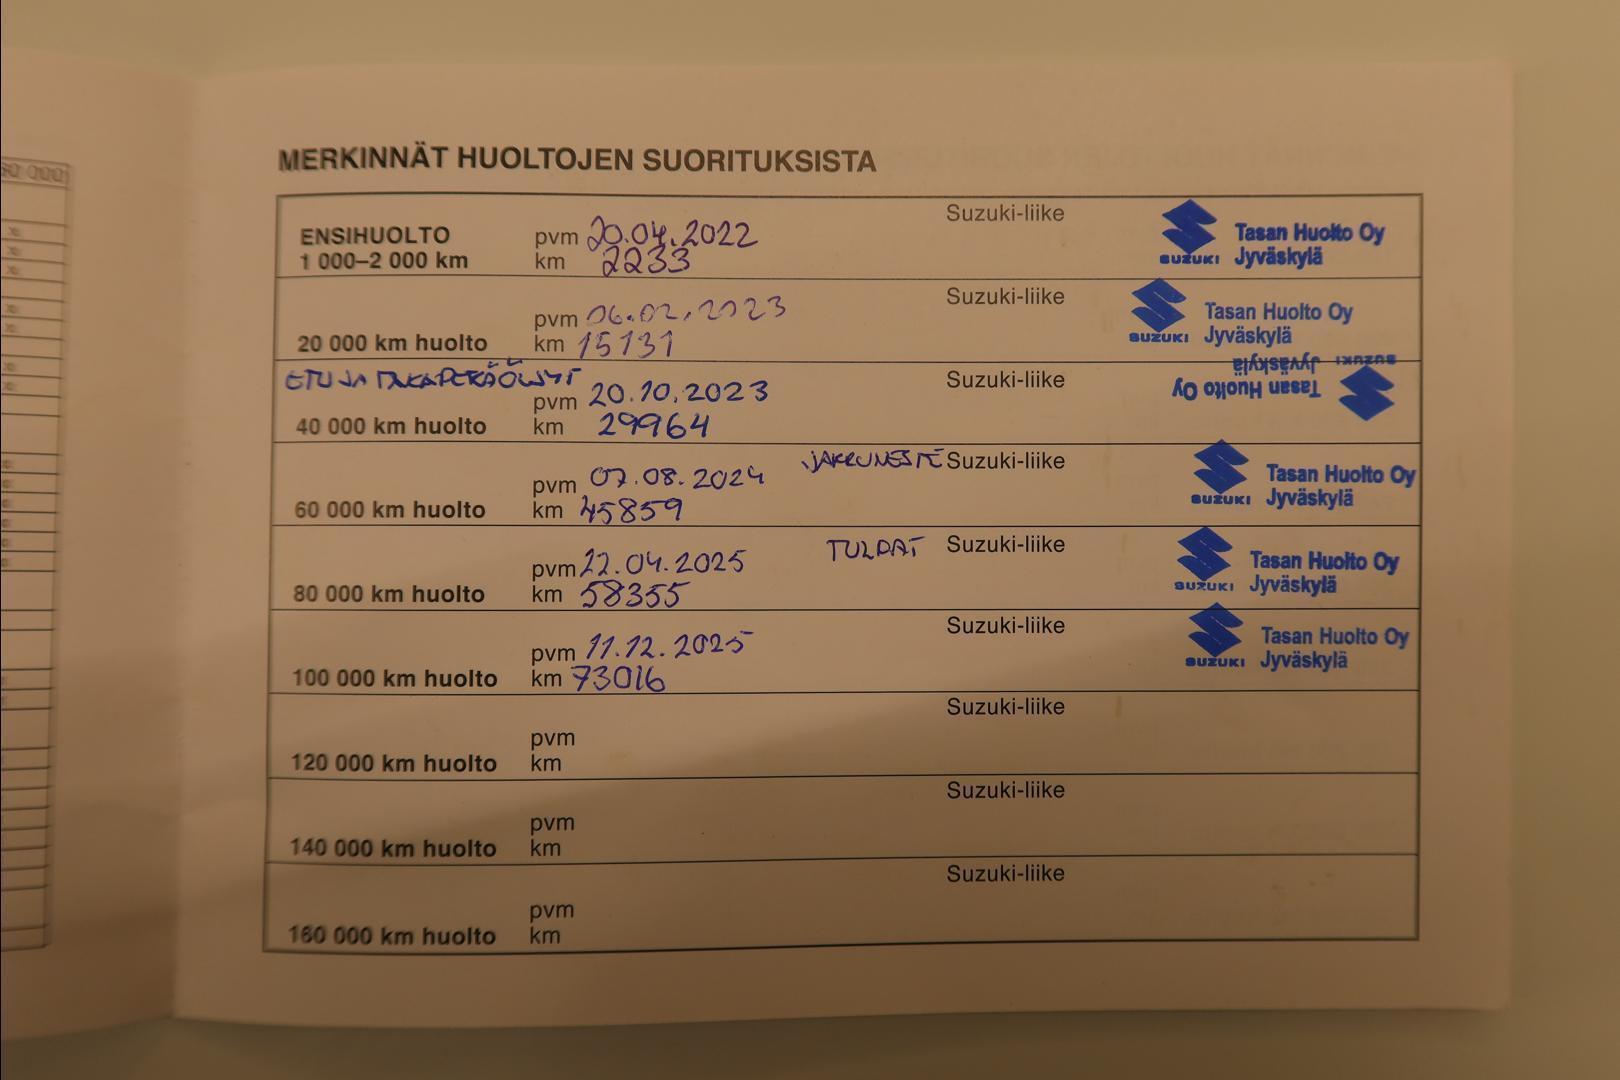 60 000
MERKINNÄT HUOLTOJEN SUORITUKSISTA
ENSIHUOLTO pvm 20.04.2022 Suzuki-liike SUZUKI Tasan Huolto Oy
1 000–2 000 km km 2233 Jyväskylä
pvm 06.02.2023 Suzuki-liike SUZUKI Tasan Huolto Oy
20 000 km huolto km 15131 Jyväskylä
ETU JA TAKAPERÄÖLJYT pvm 20.10.2023 Suzuki-liike SUZUKI Tasan Huolto Oy
40 000 km huolto km 29964 Jyväskylä
pvm 07.08.2024 JARRUNESTE Suzuki-liike SUZUKI Tasan Huolto Oy
60 000 km huolto km 45859 Jyväskylä
pvm 22.04.2025 TULPAT Suzuki-liike SUZUKI Tasan Huolto Oy
80 000 km huolto km 58355 Jyväskylä
pvm 11.12.2025 Suzuki-liike SUZUKI Tasan Huolto Oy
100 000 km huolto km 73016 Jyväskylä
pvm Suzuki-liike
120 000 km huolto km
pvm Suzuki-liike
140 000 km huolto km
pvm Suzuki-liike
160 000 km huolto km